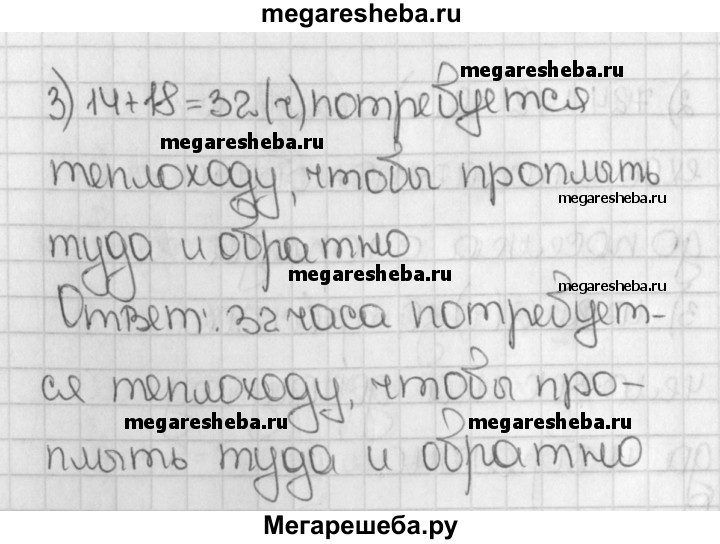 megaresheba.ru
3) 14+18=32(ч) потребуется
megaresheba.ru
megaresheba.ru
теплоходу, чтобы проплыть
megaresheba.ru
туда и обратно
megaresheba.ru
megaresheba.ru
Ответ: 32 часа потребует-
ся теплоходу, чтобы про-
megaresheba.ru
megaresheba.ru
плыть туда и обратно
Мегарешеба.ру